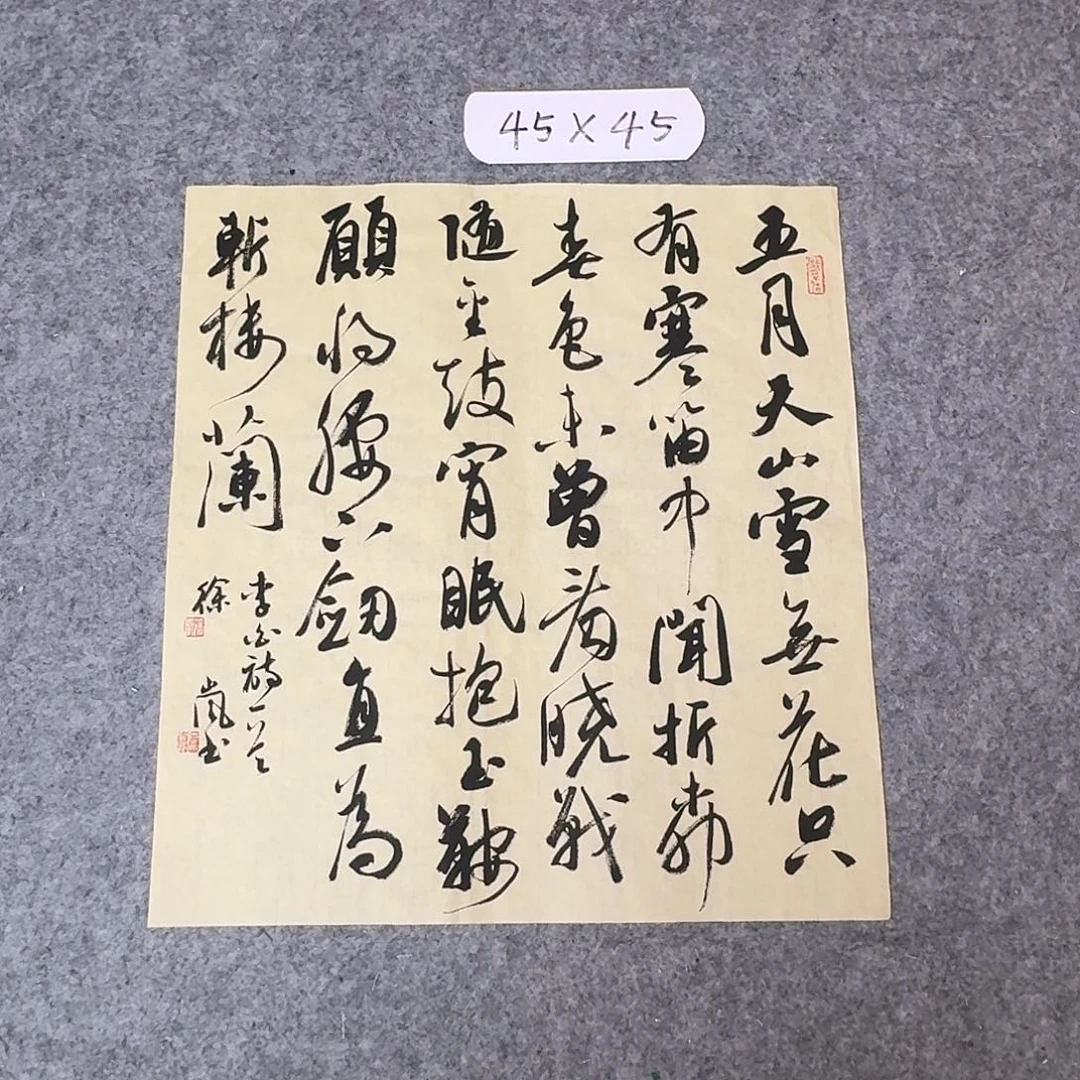 45×45
五月天山雪無花只
有寒笛中聞折柳
春色未曾看曉戰
隨金鼓宵眠抱玉鞍
願將腰下劍直為
斬樓蘭
李白詩一首
徐嵐书